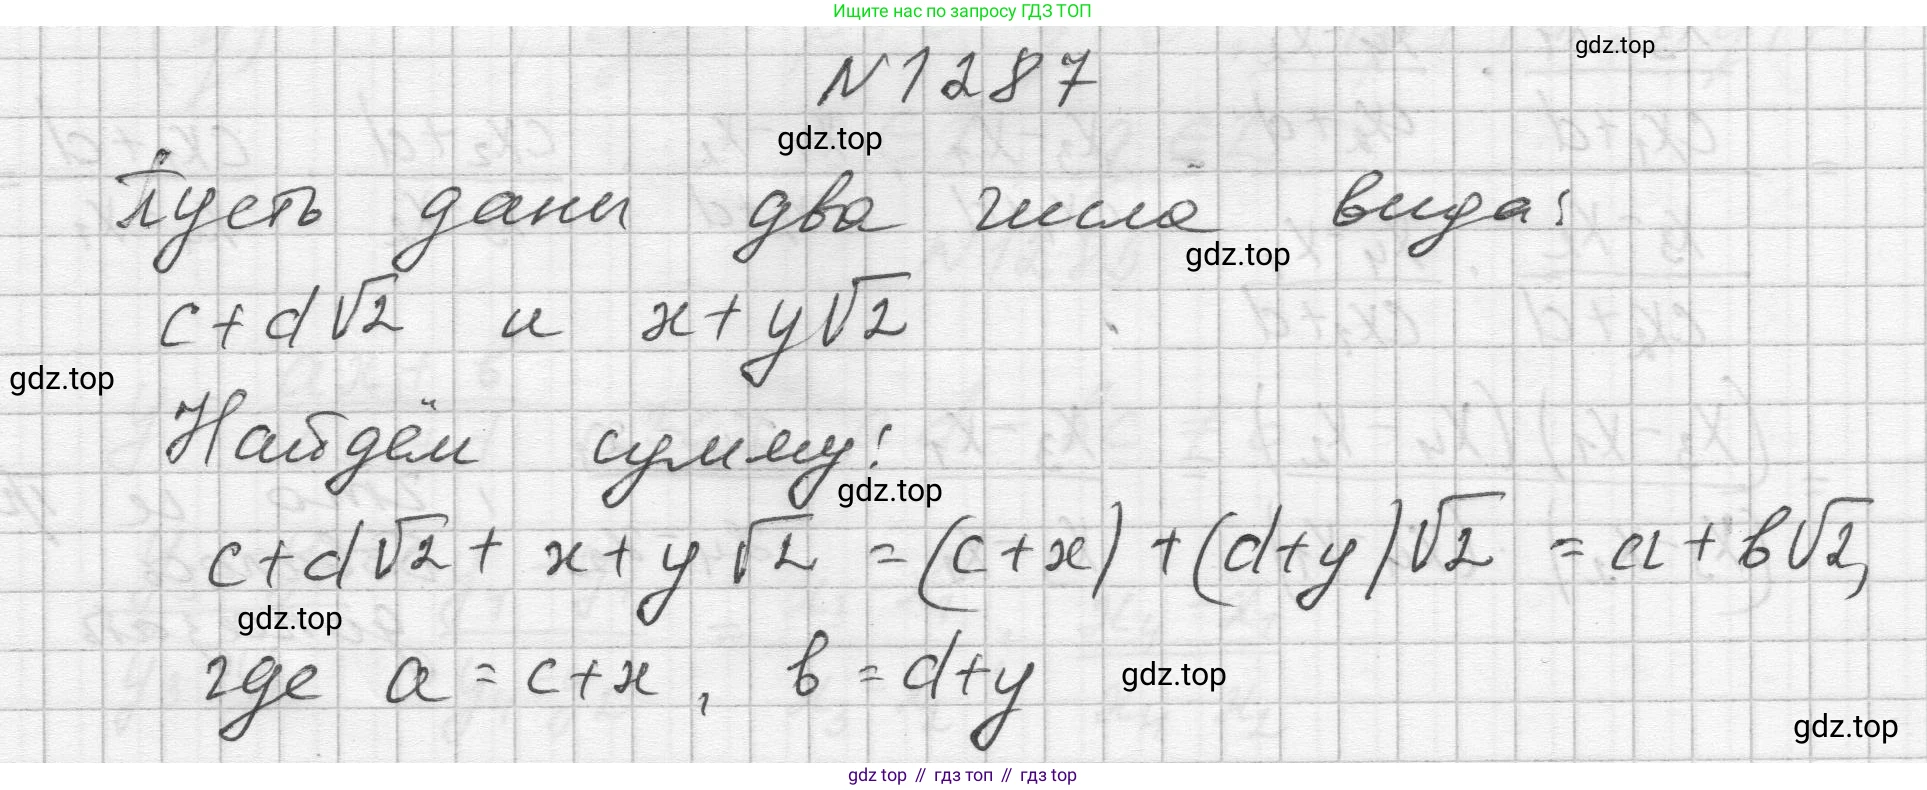 Ищите нас по запросу ГДЗ ТОП
gdz.top
N1287
gdz.top
Пусть даны два числа вида:
gdz.top
c+d√2 и x+y√2
gdz.top
Найдём сумму:
gdz.top
c+d√2+x+y√2=(c+x)+(d+y)√2=a+b√2,
gdz.top
где a=c+x, b=d+y
gdz.top
gdz.top
gdz top // гдз топ // гдз top